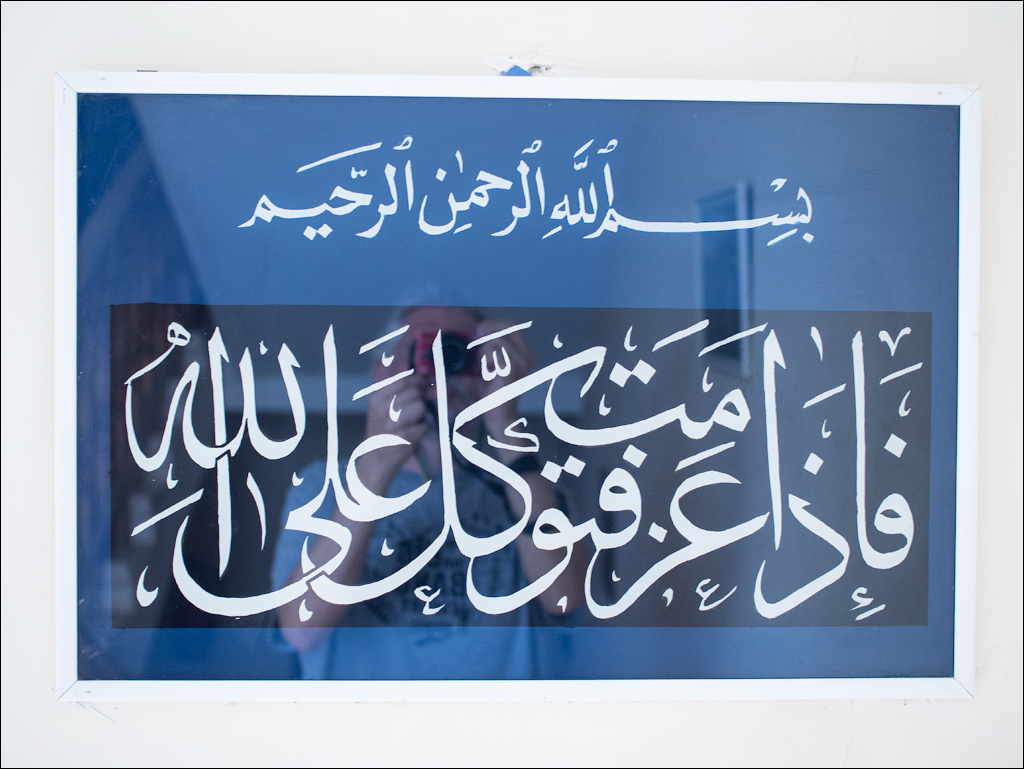 بِسْمِ اللَّهِ الرَّحْمٰنِ الرَّحِيمِ
فَإِذَا عَزَمْتَ فَتَوَكَّلْ عَلَى اللَّهِ